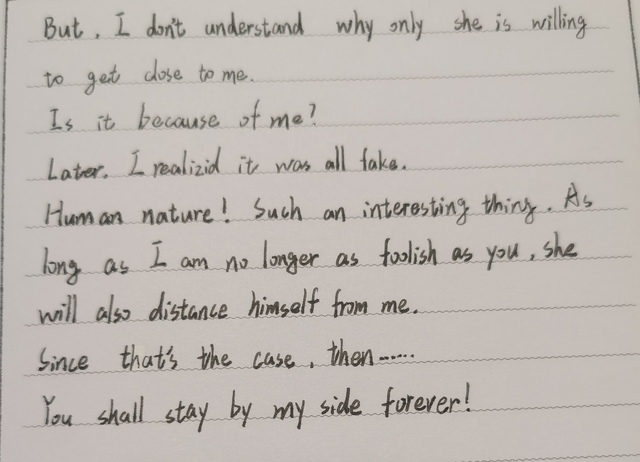 But, I don't understand why only she is willing
to get close to me.
Is it because of me?
Later. I realizid it was all fake.
Human nature! Such an interesting thing. As
long as I am no longer as foolish as you, she
will also distance himself from me.
Since that's the case, then......
You shall stay by my side forever!